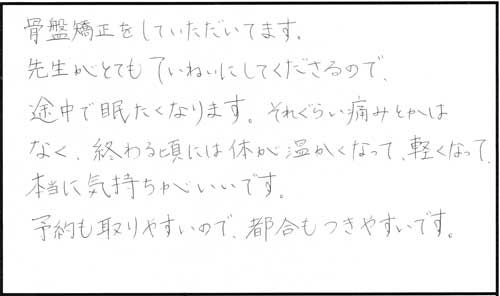 骨盤矯正をしていただいてます。
先生がとてもていねいにしてくださるので、
途中で眠たくなります。それぐらい痛みとかは
なく、終わる頃には体が温かくなって、軽くなって、
本当に気持ちがいいです。
予約も取りやすいので、都合もつきやすいです。